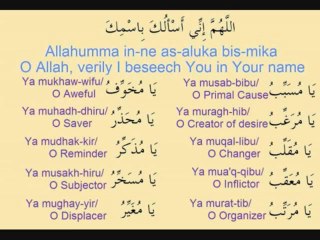 اللَّهُمَّ إِنِّي أَسْأَلُكَ بِاسْمِكَ
Allahumma in-ne as-aluka bis-mika
O Allah, verily I beseech You in Your name
Ya mukhaw-wifu/ O Aweful يَا مُخَوِّفُ
Ya musab-bibu/ O Primal Cause يَا مُسَبِّبُ
Ya muhadh-dhiru/ O Saver يَا مُحَذِّرُ
Ya muragh-hib/ O Creator of desire يَا مُرَغِّبُ
Ya mudhak-kir/ O Reminder يَا مُذَكِّرُ
Ya muqal-libu/ O Changer يَا مُقَلِّبُ
Ya musakh-hiru/ O Subjector يَا مُسَخِّرُ
Ya mua'q-qibu/ O Inflictor يَا مُعَقِّبُ
Ya mughay-yir/ O Displacer يَا مُغَيِّرُ
Ya murat-tib/ O Organizer يَا مُرَتِّبُ